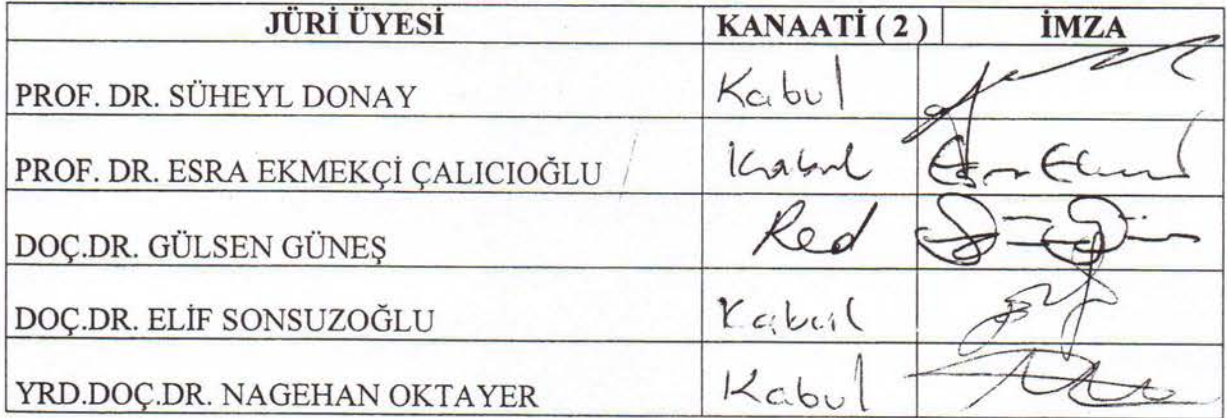 JÜRİ ÜYESİ KANAATİ ( 2 ) İMZA
PROF. DR. SÜHEYL DONAY Kabul
PROF. DR. ESRA EKMEKÇİ ÇALICIOĞLU Kabul
DOÇ.DR. GÜLSEN GÜNEŞ Red
DOÇ.DR. ELİF SONSUZOĞLU Kabul
YRD.DOÇ.DR. NAGEHAN OKTAYER Kabul